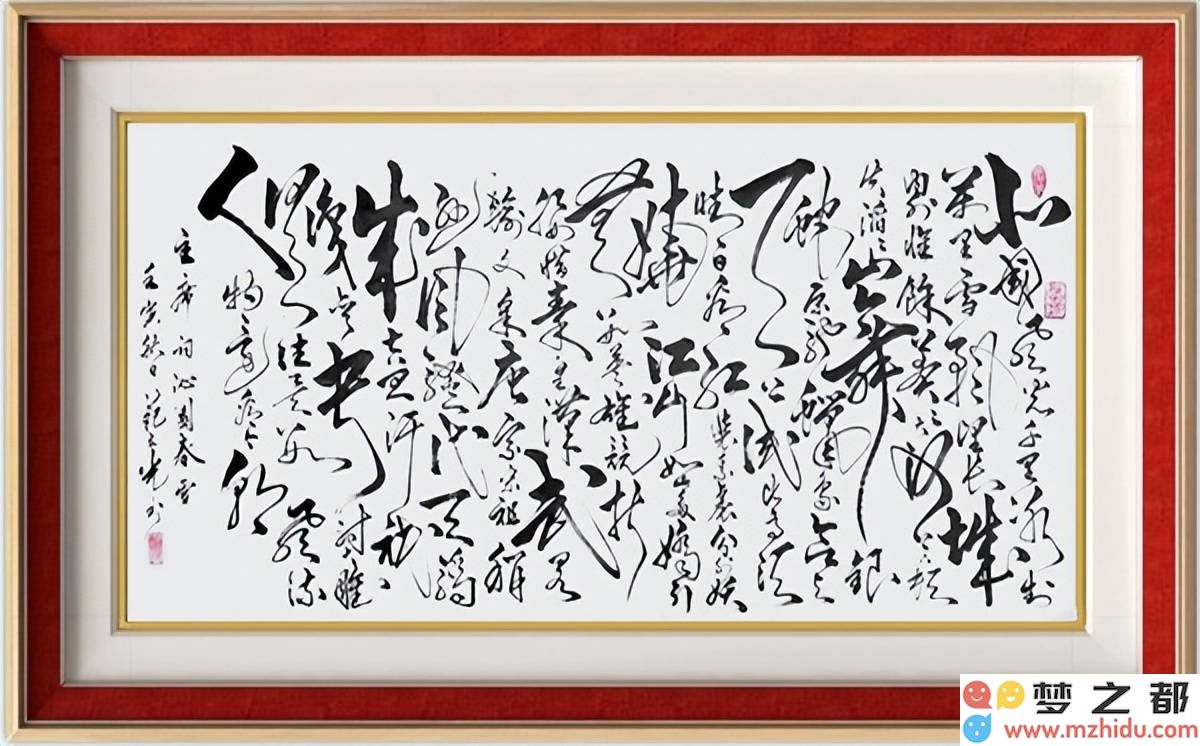 北國風光千里冰封
萬里雪飘望长城
内外惟餘莽莽大河上下頓
失滔滔山舞銀
蛇原驰蜡象欲与
天公試比高须
晴日看红装素裹分外妖
嬈江山如此多嬌引
無數英雄競折
腰惜秦皇漢武略
輸文采唐宗宋祖稍
逊風騷一代天驕
成吉思汗只識
弯弓射大雕
俱往矣數風流
人物還看今朝
主席词沁園春雪
壬寅秋日范光书
梦之都
www.mzhidu.com